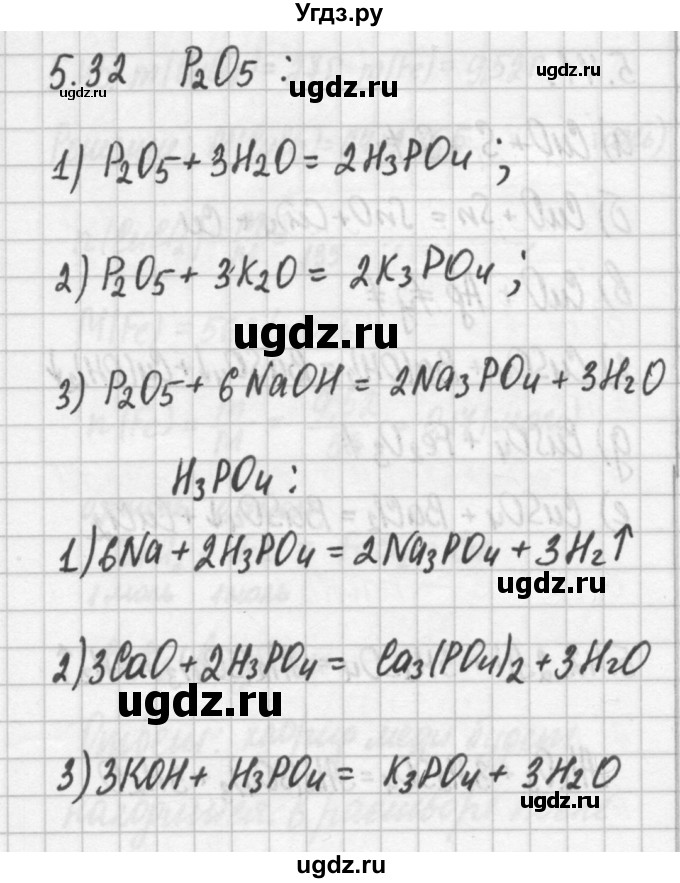 Угдз.ру
5.32 P2O5 :
ugdz.ru
ugdz.ru
ugdz.ru
1) P2O5 + 3H2O = 2H3PO4 ;
2) P2O5 + 3K2O = 2K3PO4 ;
ugdz.ru
3) P2O5 + 6NaOH = 2Na3PO4 + 3H2O
H3PO4 :
1) 6Na + 2H3PO4 = 2Na3PO4 + 3H2↑
ugdz.ru
2) 3CaO + 2H3PO4 = Ca3(PO4)2 + 3H2O
ugdz.ru
3) 3KOH + H3PO4 = K3PO4 + 3H2O
ugdz.ru
ugdz.ru